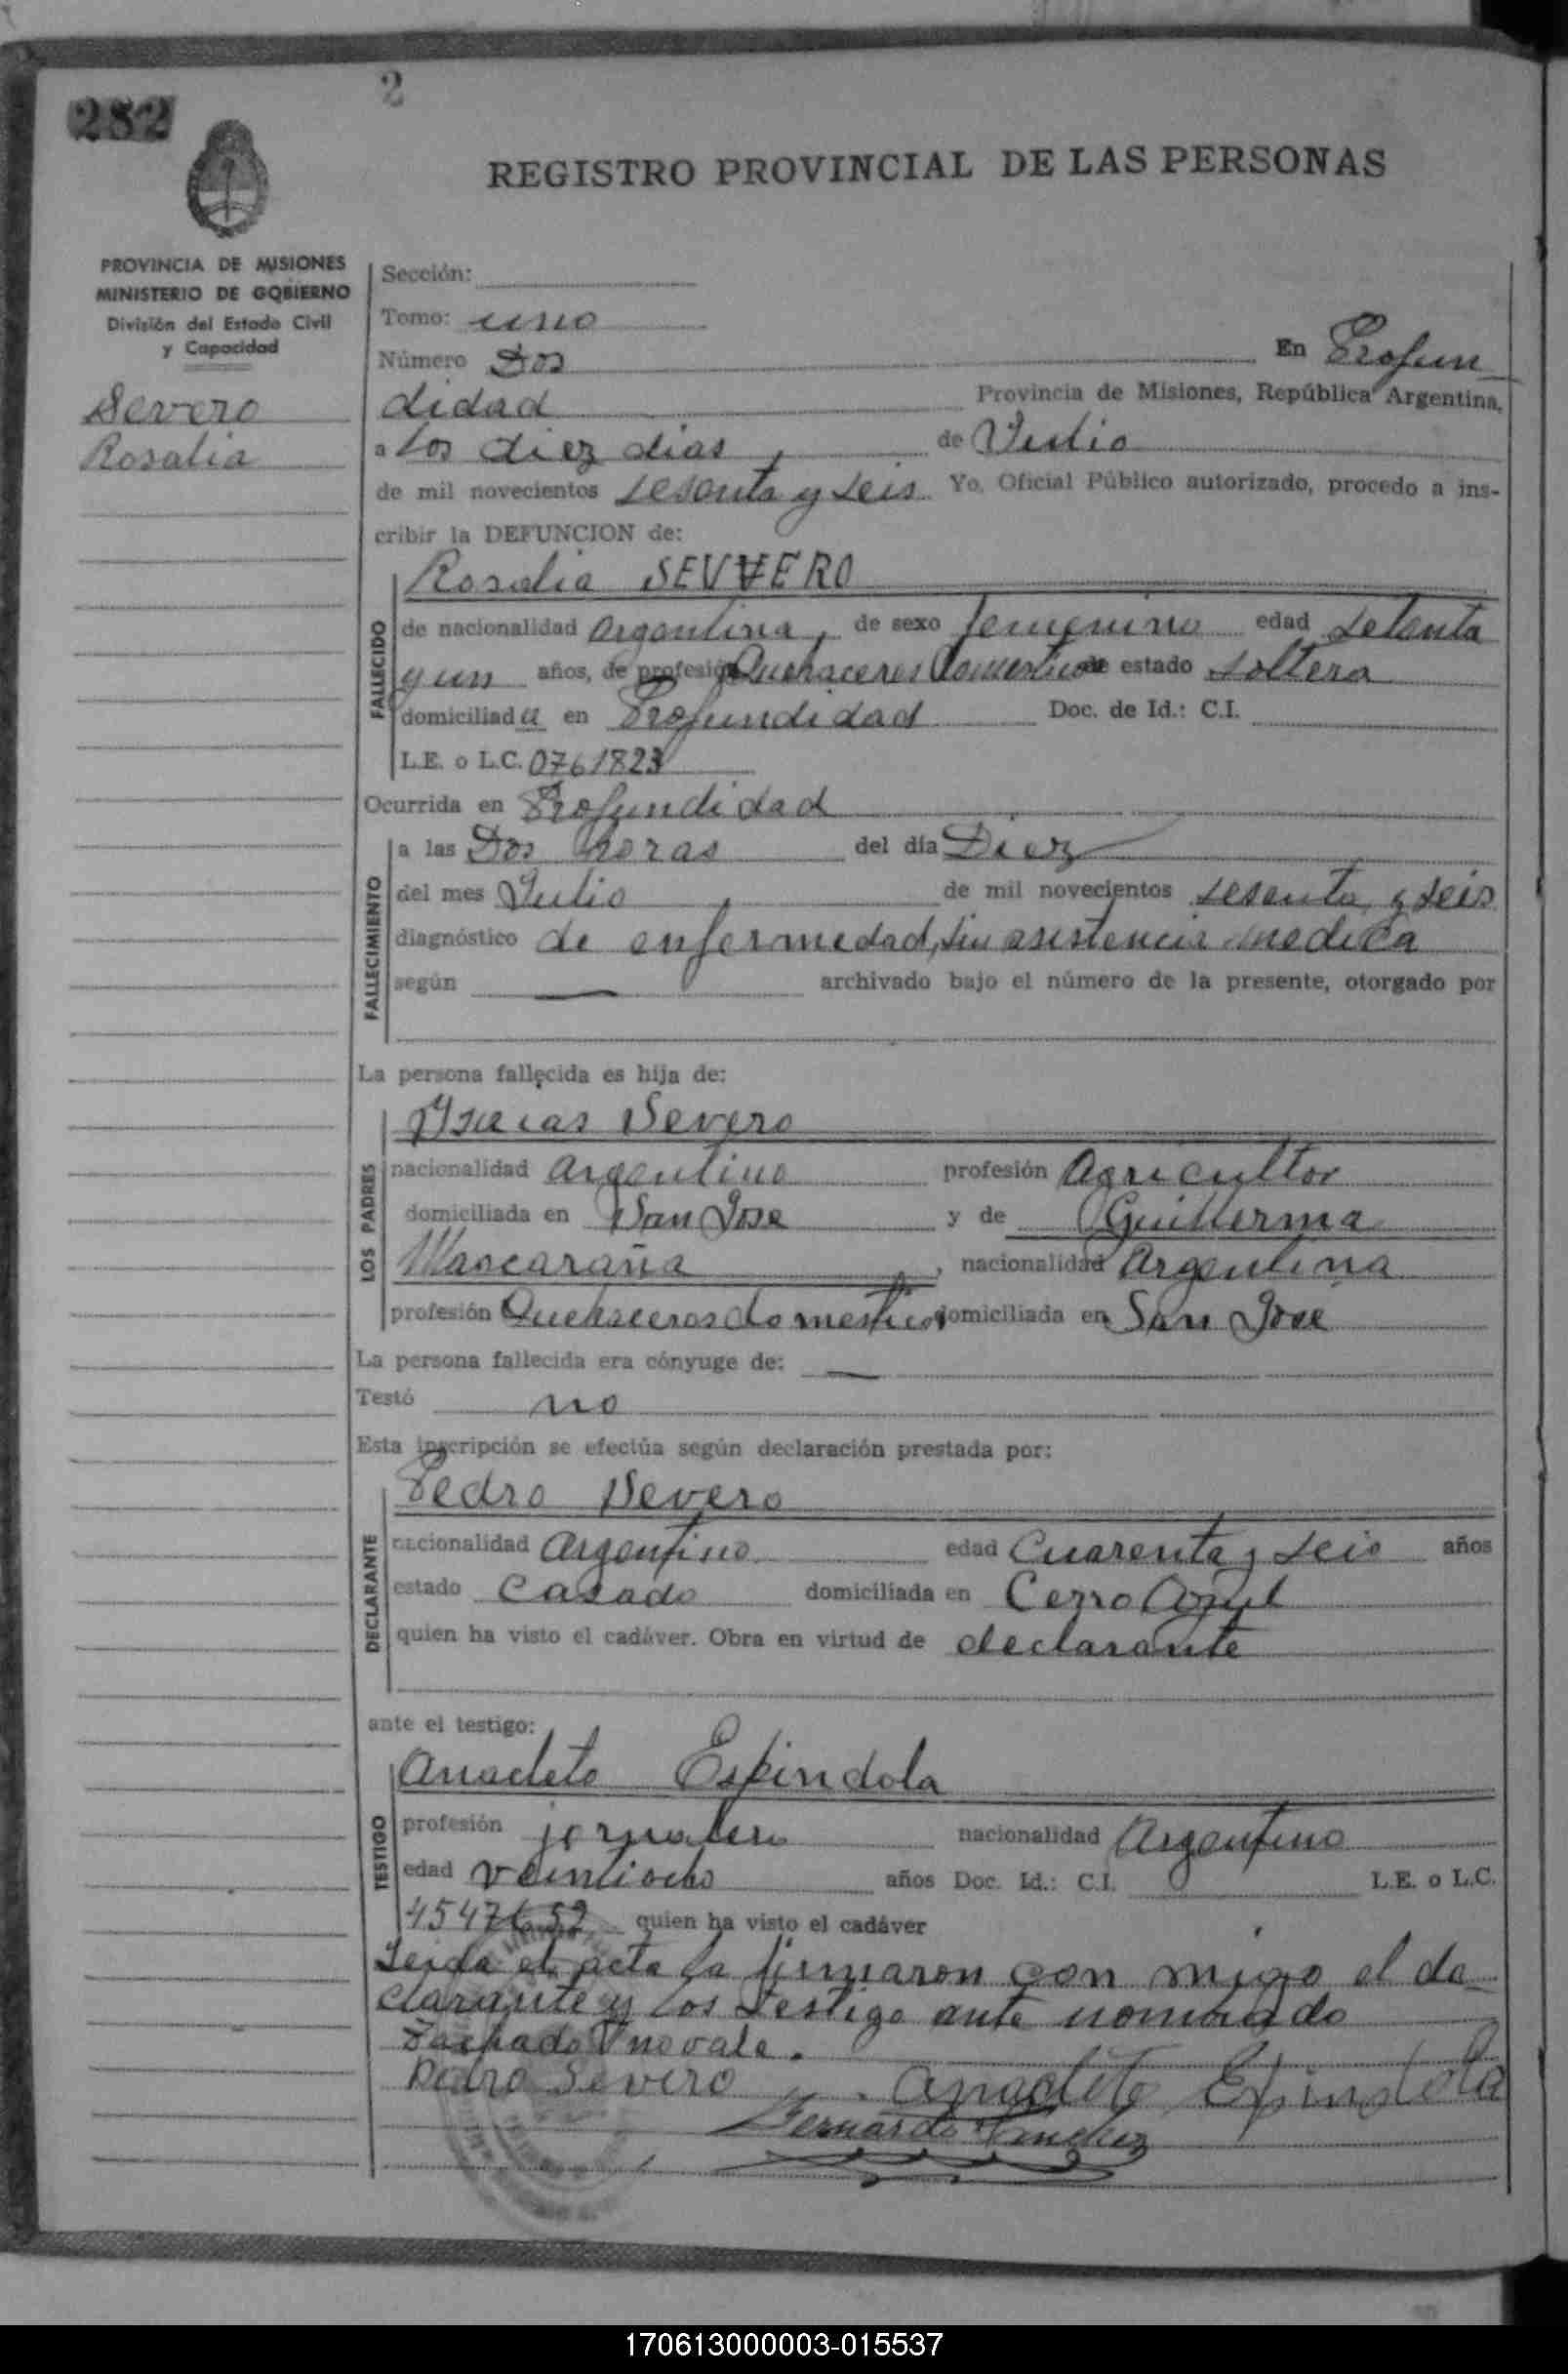 2
282
REGISTRO PROVINCIAL DE LAS PERSONAS
PROVINCIA DE MISIONES
MINISTERIO DE GOBIERNO
División del Estado Civil
y Capacidad
Severo
Rosalia
Sección:
Tomo: uno
Número Dos En Profun
didad Provincia de Misiones, República Argentina,
a los diez dias de Julio
de mil novecientos sesenta y seis Yo, Oficial Público autorizado, procedo a ins-
cribir la DEFUNCION de:
Rosalia SEVVERO
FALLECIDO
de nacionalidad argentina, de sexo femenino edad setenta
y un años, de profesión Quehaceres Domesticos de estado soltera
domiciliada en Profundidad Doc. de Id.: C.I.
L.E. o L.C. 0761823
Ocurrida en Profundidad
FALLECIMIENTO
a las Dos horas del día Diez
del mes Julio de mil novecientos sesenta y seis
diagnóstico de enfermedad, sin asistencia medica
según — archivado bajo el número de la presente, otorgado por
La persona fallecida es hija de:
LOS PADRES
Ysaias Severo
nacionalidad argentino profesión Agricultor
domiciliada en San Jose y de Guillerma
Mascaraña, nacionalidad Argentina
profesión Quehaceros domesticos domiciliada en San José
La persona fallecida era cónyuge de: —
Testó no
Esta inscripción se efectúa según declaración prestada por:
DECLARANTE
Pedro Severo
nacionalidad Argentino edad Cuarenta y seis años
estado Casado domiciliada en Cerro Azul
quien ha visto el cadáver. Obra en virtud de declarante
ante el testigo:
TESTIGO
Anacleto Espindola
profesión jornalero nacionalidad Argentino
edad veintiocho años Doc. Id.: C.I. L.E. o L.C.
quien ha visto el cadáver
Leida el acta la firmaron con migo el de
clarante y los testigo ante nombrado
Tachado V no vale.
Pedro Severo Anacleto Espindola
Fernardo Sanchez
170613000003-015537